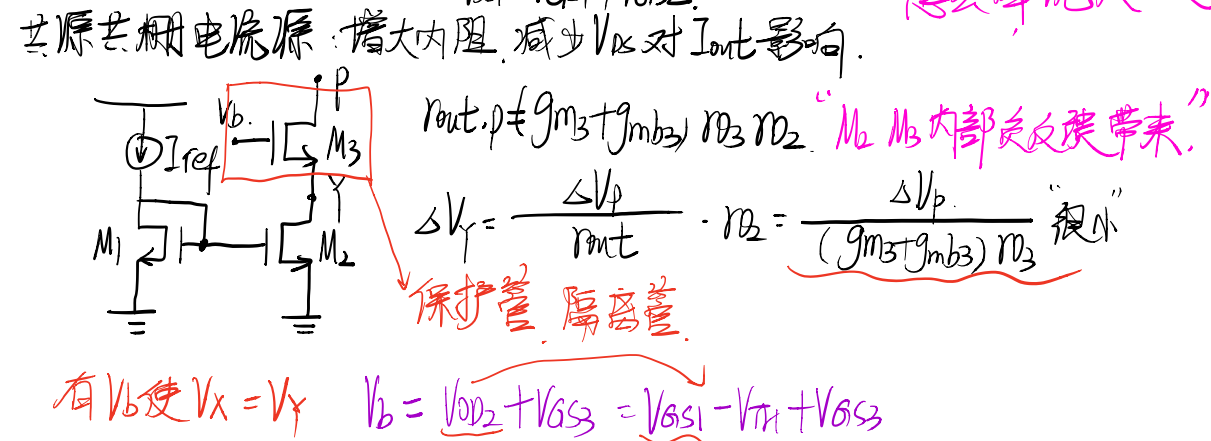 共源共栅电流源:增大内阻,减少V_DS对Iout影响.
Vb.
P
Iref
M3
Y
M1
M2
rout.p=(gm3+gmb3)ro3ro2. “M2 M3内部负反馈带来.”
ΔVY=ΔVp/rout·ro2=ΔVp./(gm3+gmb3)ro3 “很小”
保护管.隔离管.
有Vb使VX=VY
Vb=VOD2+VGS3=VGS1-VTH+VGS3